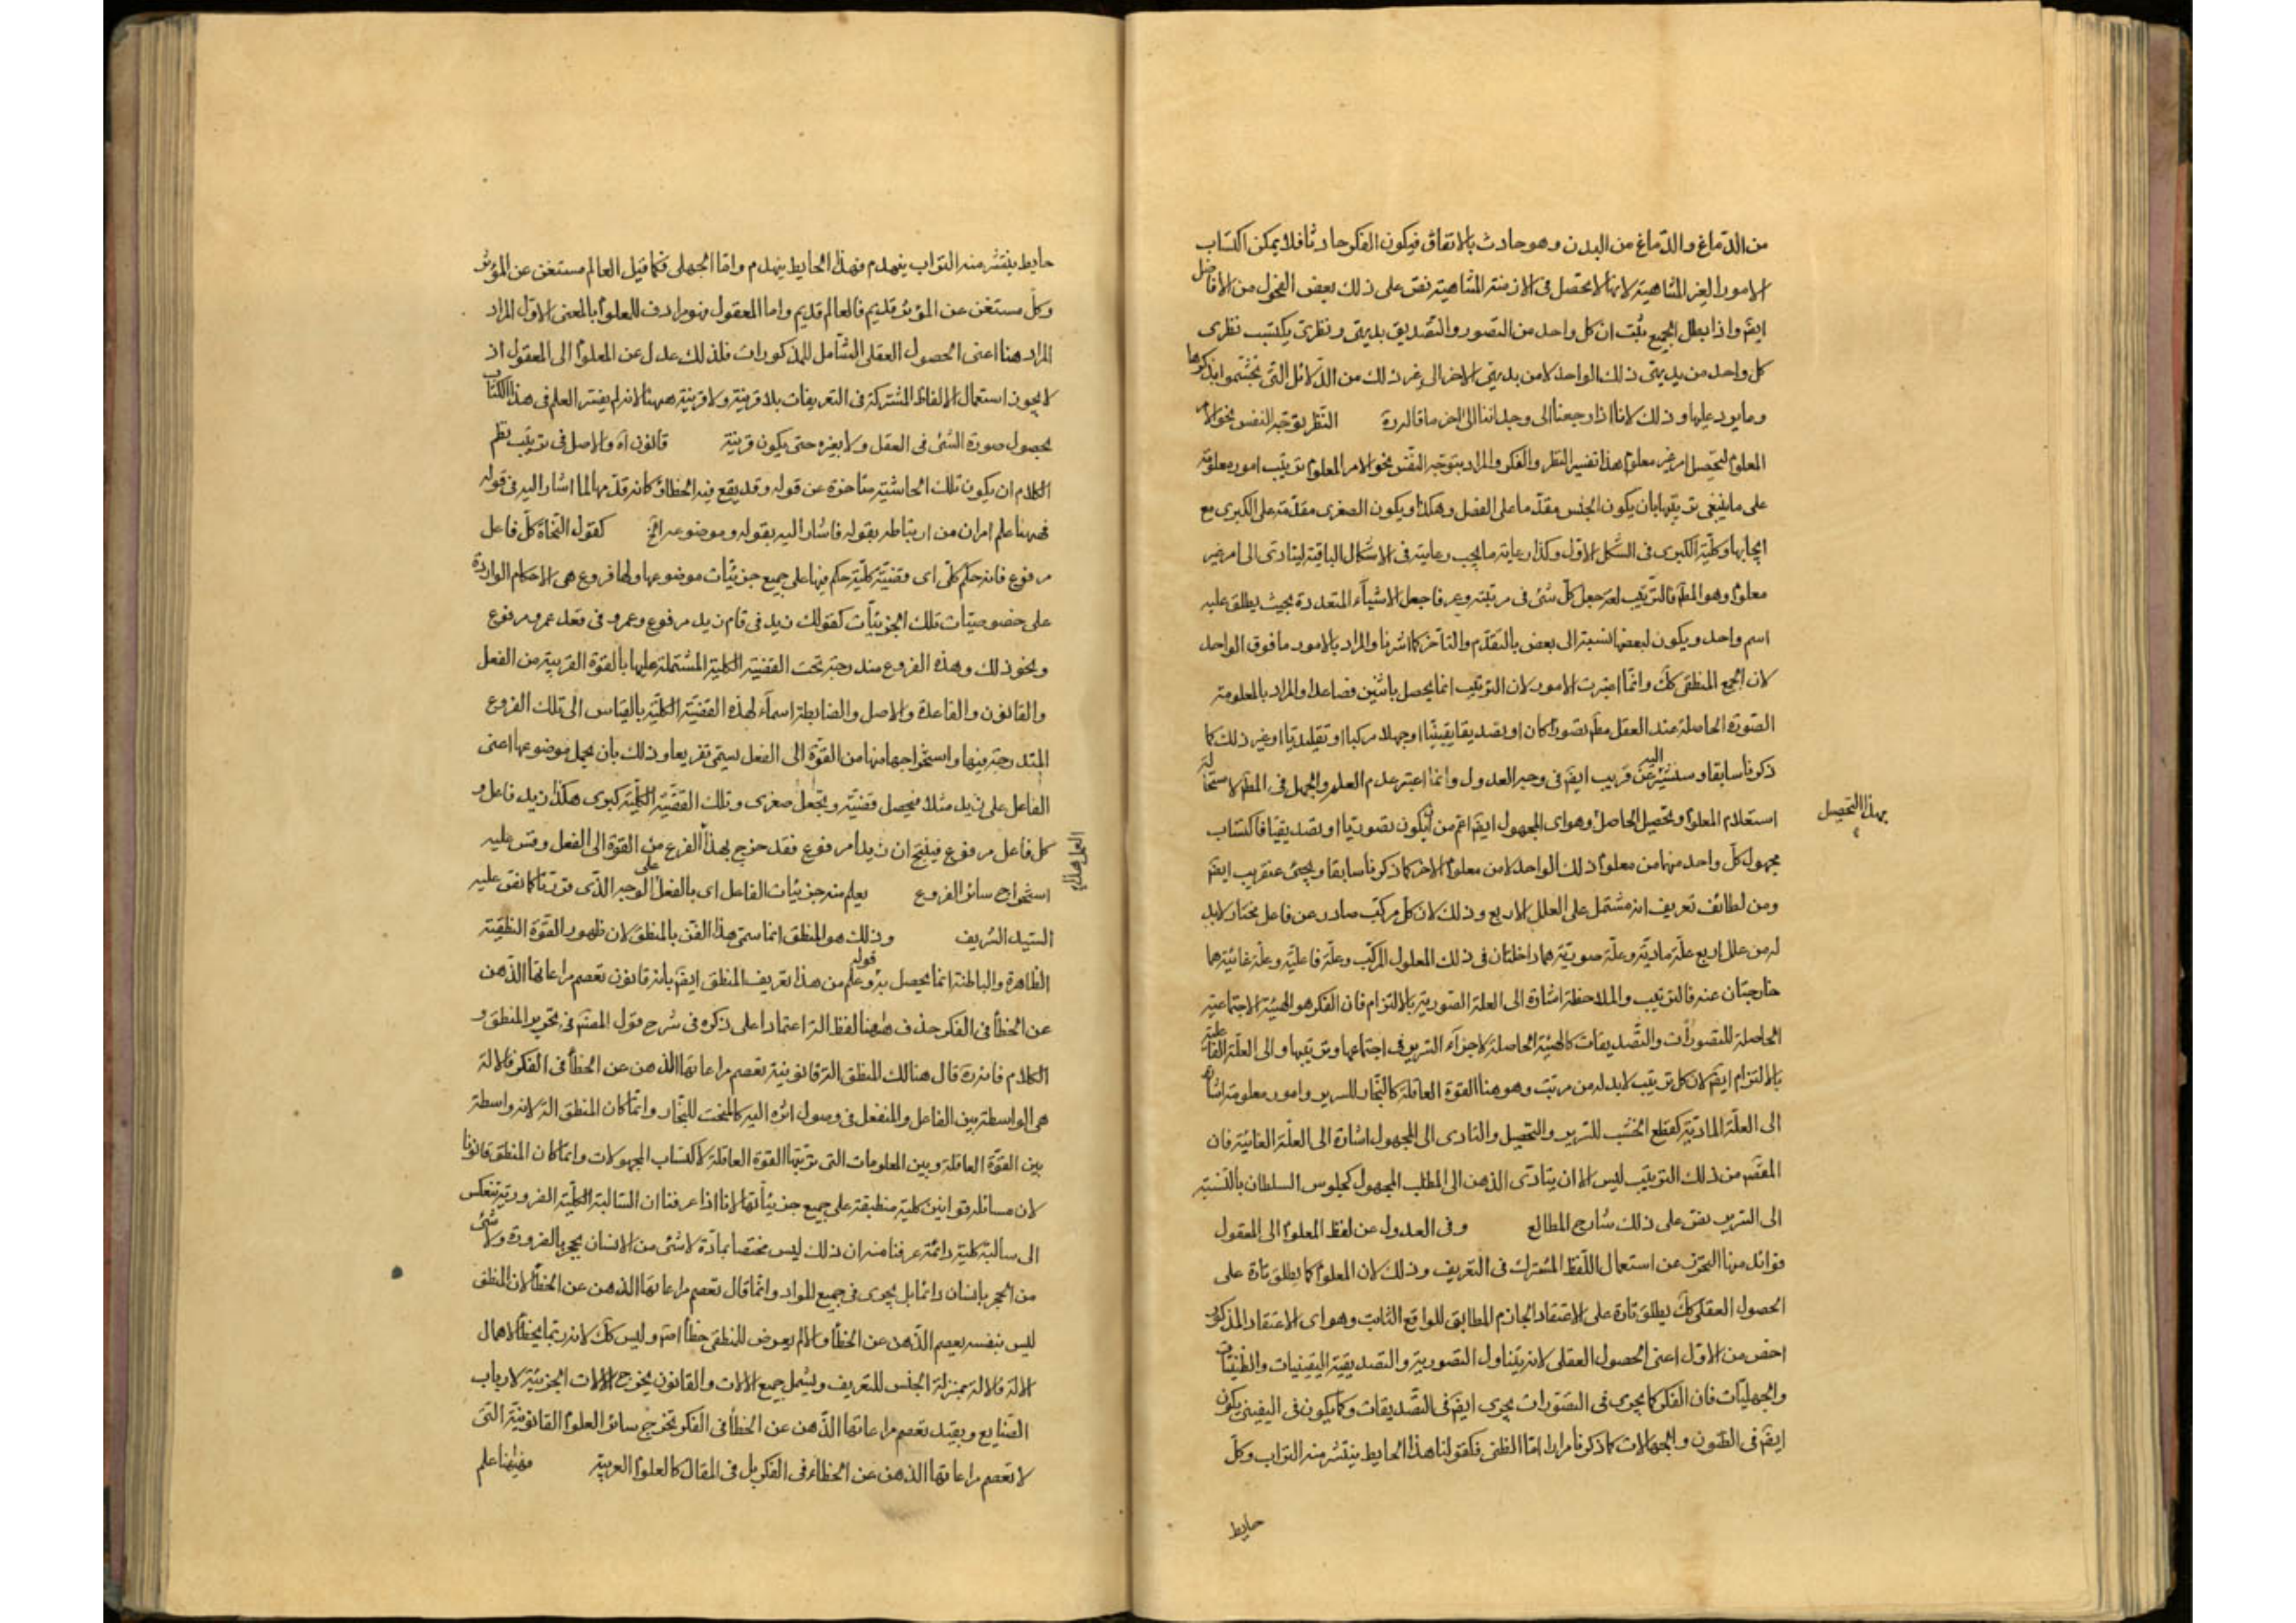 من الدماغ والدماغ من البدن وهو حادث بالاتفاق فيكون الفكر حادثا فلا يمكن اكتساب
الامور الغير المتناهية لانها لا تحصل فى الازمنة المتناهية نص على ذلك بعض الفحول من الافاضل
ايضً واذا بطل الجميع ثبت ان كل واحد من التصور والتصديق بديهى ونظرى يكتسب نظرى
كل واحد من بديهى ذلك الواحد لا من بديهى الاخر الى غير ذلك من الدلائل التى تجشموا بذكرها
وما يرد عليها وذلك لانا اذا رجعنا الى وجداننا الى اخر ما قاله ره النظر توجه النفس نحو الامر
المعلوم لتحصيل امر غير معلوم هذا تفسير النظر والفكر والمراد بتوجه النفس نحو الامر المعلوم ترتيب امور معلومة
على ما ينبغى ترتيبها بان يكون الجنس مقدما على الفصل وهكذا ويكون الصغرى مقدمة على الكبرى مع
ايجابها وكلية الكبرى فى الشكل الاول وكذا رعاية ما يجب رعايته فى الاشكال الباقية ليتادى الى امر غير
معلوم وهو المط فالترتيب لغة جعل كل شئ فى مرتبته وعرفا جعل الاشياء المتعددة بحيث يطلق عليه
اسم واحد ويكون لبعضها نسبة الى بعض بالتقدم والتاخر كما اشرنا والمراد بالامور ما فوق الواحد
لان الجمع المنطقى كك وانما اعتبرت الامور لان الترتيب انما يحصل باثنين فصاعدا والمراد بالمعلومة
الصورة الحاصلة عند العقل مط تصورا كان او تصديقا يقينيا او جهلا مركبا او تقليديا او غير ذلك كما
ذكرنا سابقا وسنشير اليه عن قريب ايضً فى وجه العدول وانما اعتبر عدم العلم والجهل فى المط لاستحالة
استعلام المعلوم وتحصيل الحاصل وهو اى المجهول ايضً اعم من ان يكون تصوريا او تصديقيا فاكتساب
بهذا التحصيل
مجهول كل واحد منهما من معلوم ذلك الواحد لا من معلوم الاخر كما ذكرنا سابقا ويجئ عنقريب ايضً
ومن لطائف تعريفه انه مشتمل على العلل الاربع وذلك لان كل مركب صادر عن فاعل مختار لابد
له من علل اربع علة مادية وعلة صورية هما داخلتان فى ذلك المعلول المركب وعلة فاعلية وعلة غائية هما
خارجتان عنه فالترتيب والملاحظة اشارة الى العلة الصورية بالالتزام فان الفكر هو الهيئة الاجتماعية
الحاصلة للتصورات والتصديقات كالهيئة الحاصلة لاجزاء السرير فى اجتماعها وترتيبها والى العلة الفاعلية
بالالتزام ايضً لان كل ترتيب لابد له من مرتب وهو هنا القوة العاقلة كالنجار للسرير وامور معلومة اشارة
الى العلة المادية كقطع الخشب للسرير والتحصيل والتادى الى المجهول اشارة الى العلة الغائية فان
المقصم من ذلك الترتيب ليس الا ان يتادى الذهن الى المطلب المجهول كجلوس السلطان بالنسبة
الى السرير نص على ذلك شارح المطالع وفى العدول عن لفظ المعلوم الى المعقول
فوائد منها التحرز عن استعمال اللفظ المشترك فى التعريف وذلك لان المعلوم كما يطلق تارة على
الحصول العقلى كك يطلق تارة على الاعتقاد الجازم المطابق للواقع الثابت وهو اى الاعتقاد المذكور
اخص من الاول اعنى الحصول العقلى لانه يتناول التصورية والتصديقية اليقينيات والظنيات
والجهليات فان الفكر كما يجرى فى التصورات يجرى ايضً فى التصديقات وكما يكون فى اليقينى يكون
ايضً فى الظنون والجهالات كما ذكرنا مرارا اما الظنى فكقولنا هذا الحايط ينتشر منه التراب وكل
حايط
حايط ينتشر منه التراب ينهدم فهذا الحايط ينهدم واما الجهلى فكما قيل العالم مستغن عن المؤثر
وكل مستغن عن المؤثر قديم فالعالم قديم واما المعقول فهو مرادف للعلوم بالمعنى الاول المراد
المراد هنا اعنى الحصول العقلى الشامل للمذكورات فلذلك عدل عن المعلوم الى المعقول اذ
لا يجوز استعمال الالفاظ المشتركة فى التعريفات بلا قرينة ولا قرينة ههنا لانه لم يفسر العلم فى هذا الكتاب
بحصول صورة الشئ فى العقل ولا بغيره حتى يكون قرينة قانون اه والاصل فى ترتيب نظم
الكلام ان يكون تلك الحاشية متاخرة عن قوله وقد يقع فيه الخطا وكانه قدمها لما اشار اليه فى قوله
فههنا علم امران من ارتباطه بقوله فاشار اليه بقوله وموضوعه الخ كقول النحاة كل فاعل
مرفوع فانه حكم كلى اى قضية كلية حكم فيها على جميع جزئيات موضوعها ولها فروع هى الاحكام الواردة
على خصوصيات تلك الجزئيات كقولك زيد فى قام زيد مرفوع وعمرو فى قعد عمرو مرفوع
ونحو ذلك وهذه الفروع مندرجة تحت القضية الكلية المشتملة عليها بالقوة القريبة من الفعل
والقانون والقاعدة والاصل والضابطة اسماء لهذه القضية الكلية بالقياس الى تلك الفروع
المندرجة فيها واستخراجها منها من القوة الى الفعل يسمى تفريعا وذلك بان يحمل موضوعها اعنى
الفاعل على زيد مثلا فيحصل قضية ويجعل صغرى وتلك القضية الكلية كبرى هكذا زيد فاعل و
كل فاعل مرفوع فينتج ان زيدا مرفوع فقد خرج بهذا الفرع من القوة الى الفعل وقس عليه
استخراج سائر الفروع يعلم منه جزئيات الفاعل اى بالفعل على الوجه الذى قررنا كما نص عليه
السيد الشريف وذلك هو المنطق انما سمى هذا الفن بالمنطق لان ظهور القوة النطقية
الظاهرة والباطنة انما يحصل به قوله وعلم من هذا تعريف المنطق ايضً بانه قانون تعصم مراعاتها الذهن
عن الخطأ فى الفكر حذف ههنا لفظ الة اعتمادا على ذكره فى شرح قول المصنم فى تحرير المنطق و
الكلام فانه ره قال هنالك المنطق الة قانونية تعصم مراعاتها الذهن عن الخطأ فى الفكر فالالة
هى الواسطة بين الفاعل والمنفعل فى وصول اثره اليه كالمنحت للنجار وانما كان المنطق الة لانه واسطة
بين القوة العاقلة وبين المعلومات التى ترتبها القوة العاقلة لاكتساب المجهولات وانما كان المنطق قانونا
لان مسائله قوانين كلية منطبقة على جميع جزئياتها لانا اذا عرفنا ان السالبة الكلية الضرورية تنعكس
الى سالبة كلية دائمة عرفنا منه ان ذلك ليس مختصا بمادة لا شئ من الانسان بحجر بالضرورة ولا شئ
من الحجر بانسان دائما بل يجرى فى جميع المواد وانما قال تعصم مراعاتها الذهن عن الخطأ لان المنطق
ليس بنفسه يعصم الذهن عن الخطأ والا لم يعرض للمنطقى خطأ اصم وليس كك لانه ربما يخطأ لاهمال
الالة فالالة بمنزلة الجنس للتعريف ويشمل جميع الالات والقانون يخرج الالات الجزئية لارباب
الصنايع وبقيد تعصم مراعاتها الذهن عن الخطأ فى الفكر تخرج سائر العلوم القانونية التى
لا تعصم مراعاتها الذهن عن الخطاء فى الفكر بل فى المقال كالعلوم العربية فههنا علم